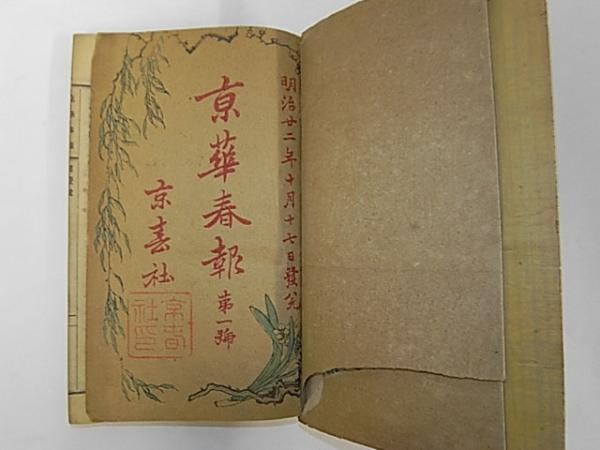 明治廿二年十月十七日發兌
京華春報
第一號
京春社
京春社印